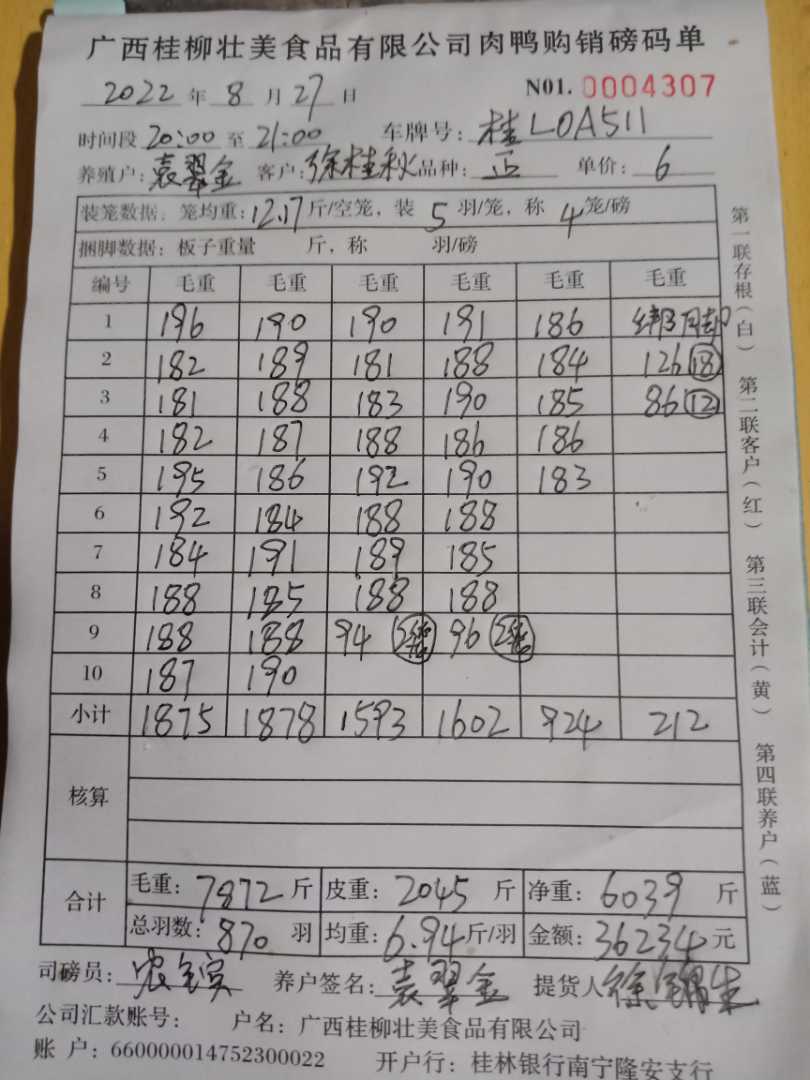 广西桂柳壮美食品有限公司肉鸭购销磅码单
2022 年 8 月 27 日 N01. 0004307
时间段 20:00 至 21:00 车牌号: 桂L0A511
养殖户: 袁翠金 客户: 徐桂秋 品种: 正 单价: 6
装笼数据: 笼均重: 12.17 斤/空笼, 装 5 羽/笼, 称 4 笼/磅
捆脚数据: 板子重量 斤, 称 羽/磅
编号 毛重 毛重 毛重 毛重 毛重 毛重
1 196 190 190 191 186 绑脚
2 182 189 181 188 184 126 18
3 181 188 183 190 185 86 12
4 182 187 188 186 186
5 195 186 192 190 183
6 192 184 188 188
7 184 191 189 185
8 188 185 188 188
9 188 188 94 2笼 96 2笼
10 187 190
小计 1875 1878 1593 1602 924 212
核算
合计 毛重: 7872 斤 皮重: 2045 斤 净重: 6039 斤
总羽数: 870 羽 均重: 6.94 斤/羽 金额: 36234 元
司磅员: 养户签名: 袁翠金 提货人
公司汇款账号: 户名: 广西桂柳壮美食品有限公司
账 户: 660000014752300022 开户行: 桂林银行南宁隆安支行
第一联存根(白) 第二联客户(红) 第三联会计(黄) 第四联养户(蓝)